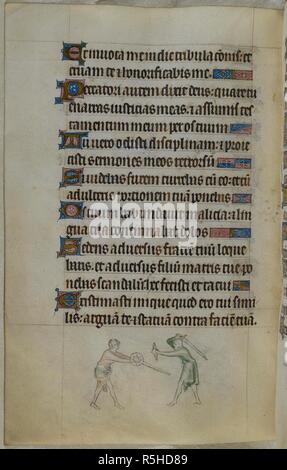 Et invoca me in die tribulacōnis: et
eruam te & honorificabis me.
Peccatori autem dixit deus: quare tu
enarras iusticias meas. & assumis tes
tamentum meum per os tuum
Tu vero odisti disciplinam: & proie
cisti sermones meos retrorsū
Si videbas furem currebas cū eo: et cū
adulteris portionem tuam ponebas
Os tuum habundavit malicia: & lin
gua tua concinnabat dolos
Sedens adversus fratrē tuū loque
baris. et adversus filiū matris tue po
nebas scandalū: hec fecisti et tacui
Existimasti inique quod ero tui simi
lis: arguam te & statuam contra faciē tuā.
alamy
alamy stock photo
R5HD89
www.alamy.com